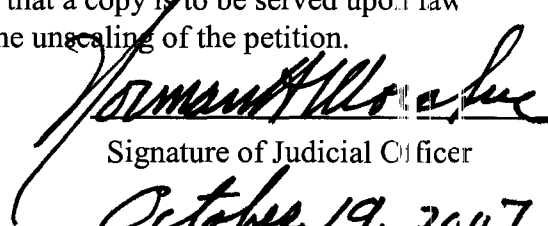 that a copy is to be served upon law
he unsealing of the petition.
Norman H
Signature of Judicial Officer
October 19, 2007